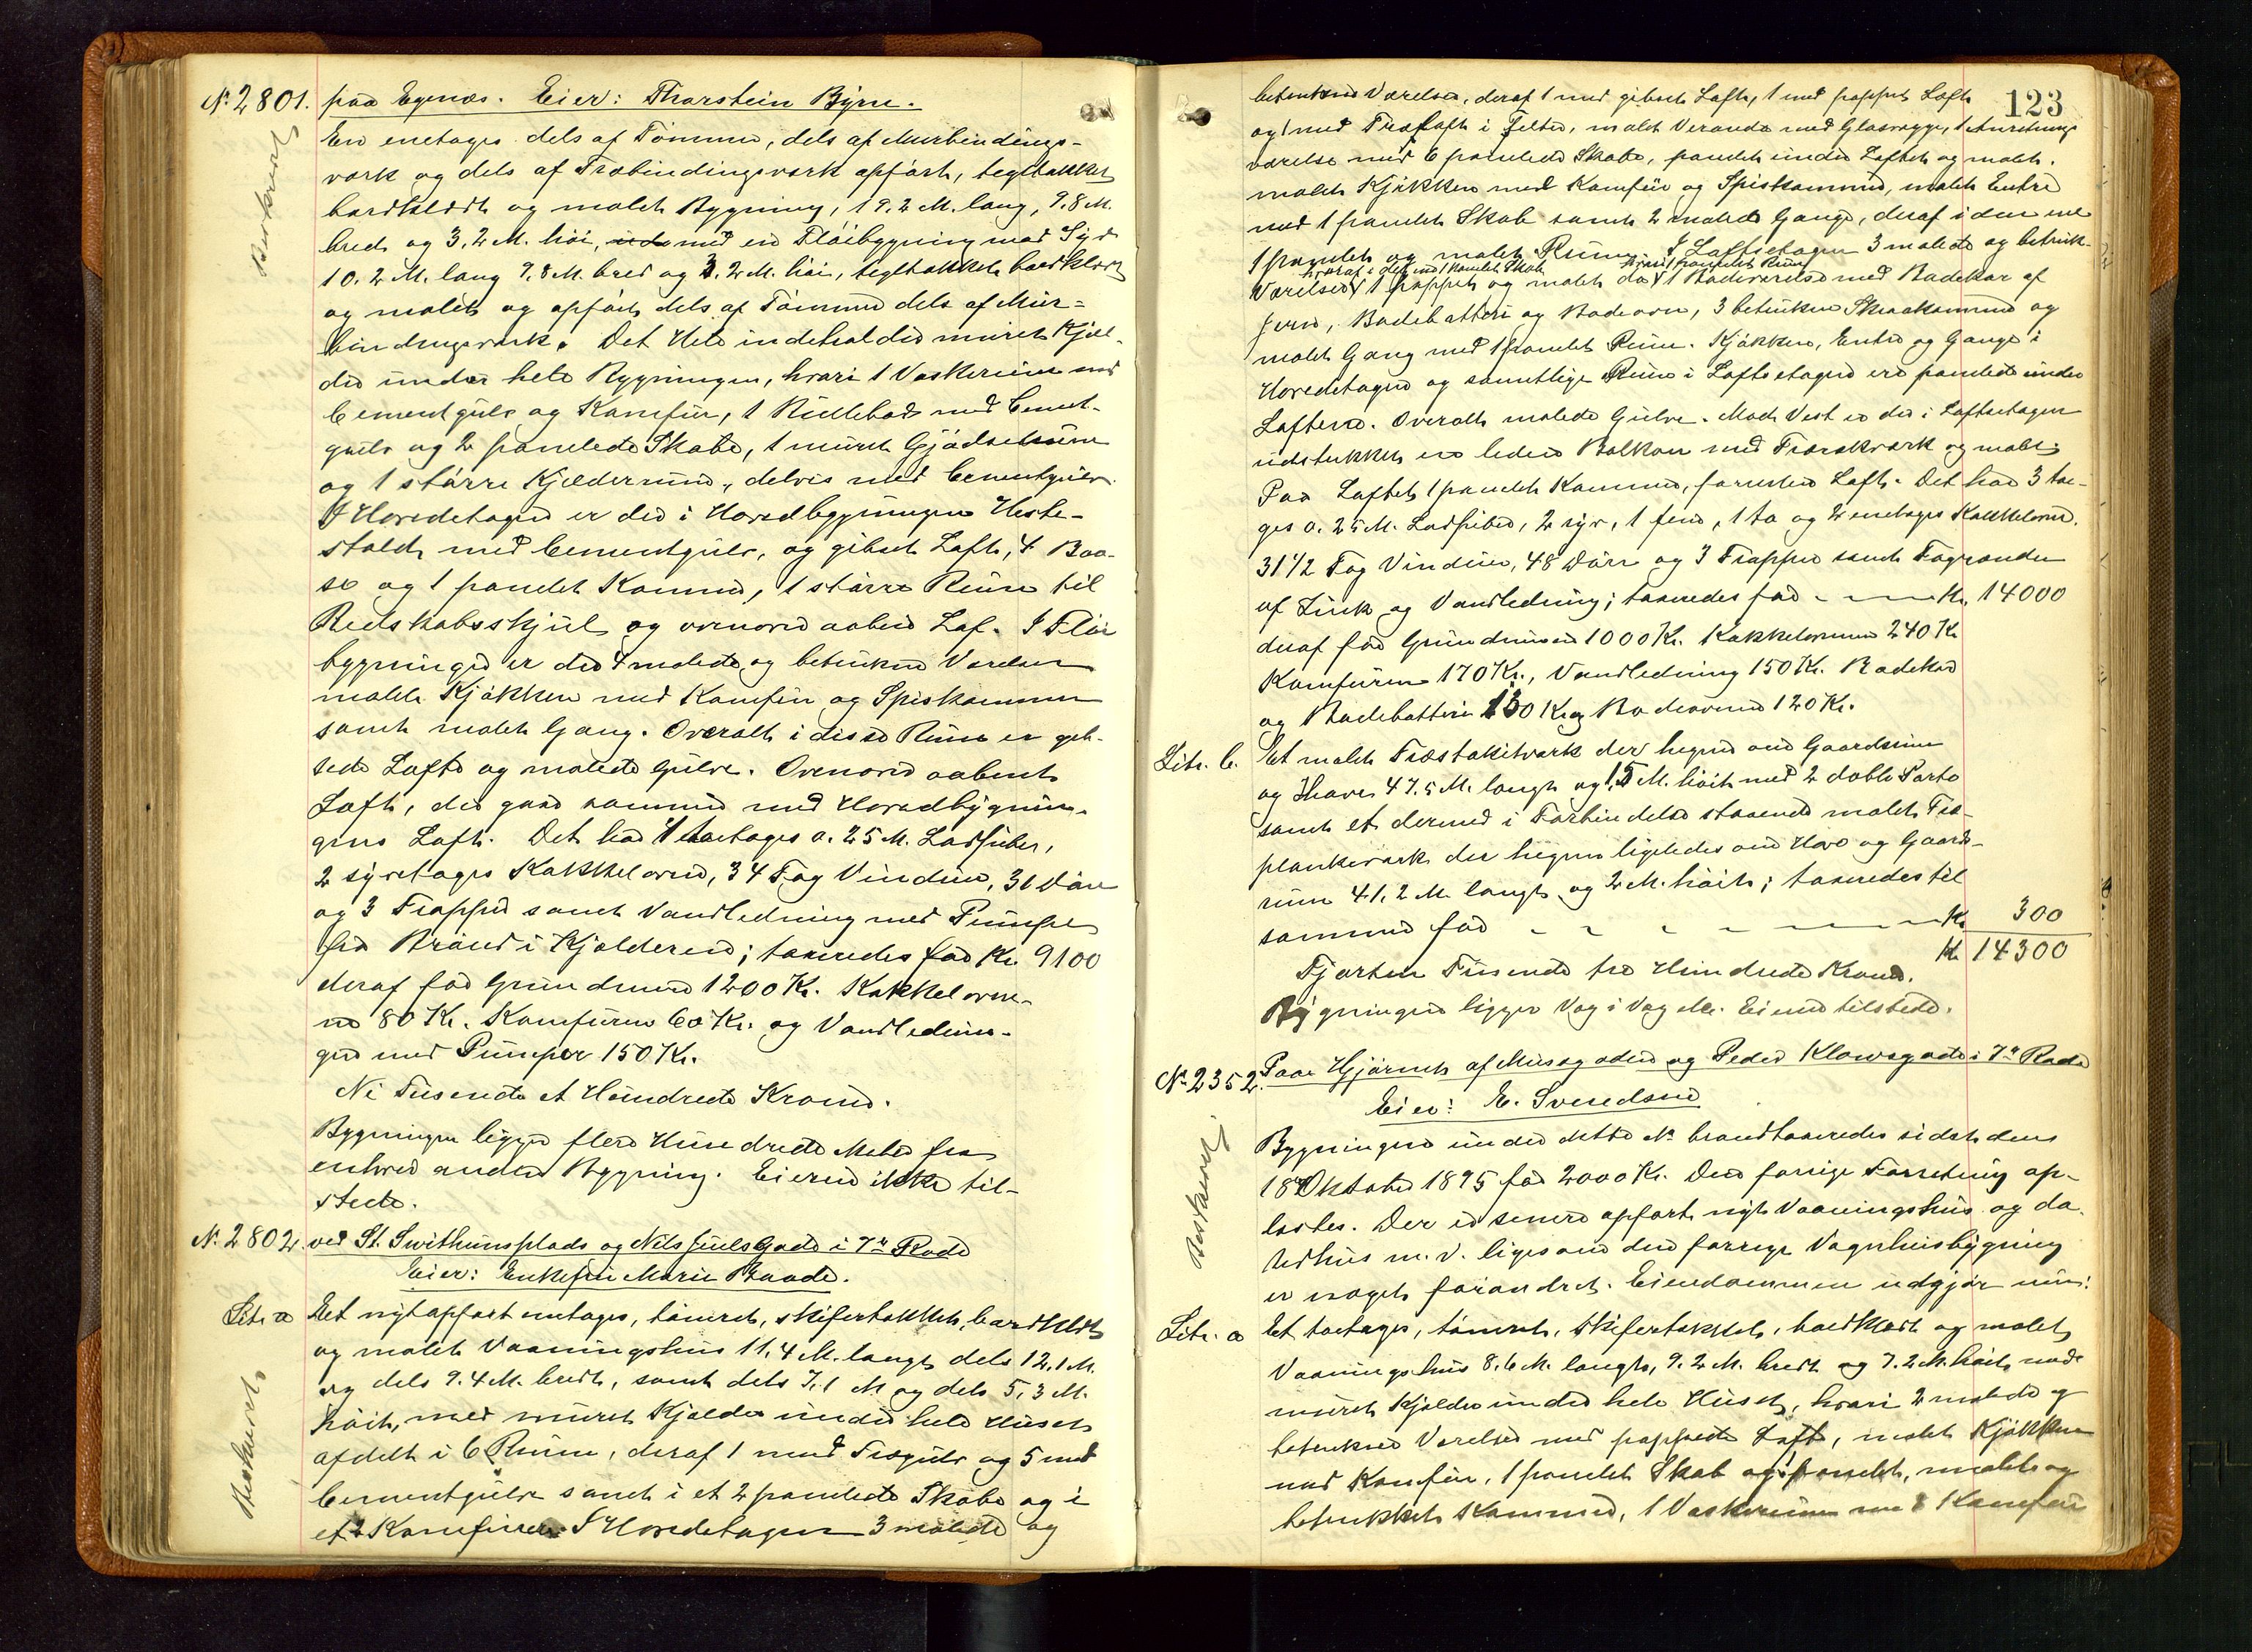 No 2801. paa Egenæs. Eier: Thorstein Bryne.
Beskrevet
En enetages dels af Tømmer, dels af Murbindings-
værk og dels af Træbindingsværk opført, tegltækket
bordklædt og malet Bygning, 19.2 M. lang, 9.8 M.
bred og 3.2 M. høi, med en Fløibygning mod Syd
10.2 M. lang 9.8 M. bred og 3.2 M. høi, tegltækket bordklædt
og malet og opført dels af Tømmer dels af Mur-
bindingsværk. Det Hele indeholder muret Kjæl-
der under hele Bygningen, hvori 1 Vaskerum med
Cementgulv og Komfur, 1 Rullebod med Cement-
gulv og 2 panelede Skabe, 1 muret Gjødselrum
og 1 større Kjælderrum, delvis med Cementgulv.
I Hovedetagen er der i Hovedbygningen Heste-
stald med Cementgulv, og gibset Loft, 4 Baa-
se og 1 panelet Kammer, 1 større Rum til
Redskabsskjul og ovenover aaben Laf. I Fløi
bygningen er der 4 malede og betrukne Værelser
malet Kjøkken med Komfur og Spiskammer
samt malet Gang. Overalt i disse Rum er gib-
sede Lofte og malede Gulve. Ovenover aabent
Loft, der gaar sammen med Hovedbygnin-
gens Loft. Det har 1 toetages a. 25 M. Ladpiber,
2 syvetages Kakkelovne, 34 Fag Vinduer, 31 Døre
og 3 Trapper samt Vandledning med Pumpe
fra Brønd i Kjælderen; taxeredes for Kr. 9100
deraf for Grundmuren 1200 Kr. Kakkelovne-
ne 80 Kr. Komfuren 60 Kr. og Vandlednin-
gen med Pumper 150 Kr.
Ni Tusende et Hundrede Kroner.
Bygningen ligger flere Hundrede Meter fra
enhver anden Bygning. Eieren ikke til-
stede.
No 2802. ved St. Swithunsplads og Nils Juels Gade i 7de Rode
Eier: Enkefru Marie Baade.
Beskrevet
Litr. a Et nyt opført enetages, tømret, skifertækket, bordklædt
og malet Vaaningshus 11.4 M. langt dels 12.1 M.
og dels 9.4 M. bredt, samt dels 7.1 M og dels 5.3 M.
høit, med muret Kjælder under hele Huset
afdelt i 6 Rum, deraf 1 med Trægulv og 5 med
Cementgulv samt i et 2 panelede Skabe og i
et 2 Komfurer. I Hovedetagen 3 malede og
123
betrukne Værelser, deraf 1 med gibset Loft, 1 med pappet Loft
og 1 med Træloft i Felter, malet Veranda med Glasvægge, 1 Anretnings
værelse med 6 panelede Skabe, panelet under Loftet og malet.
malet Kjøkken med Komfur og Spiskammer, malet Entre
med 1 panelet Skab samt 2 malede Gange, deraf i den ene
1 panelet og malet Rum. I Loftsetagen 3 malede og betruk-
hvoraf i det ene 1 panelet Skab hvori 1 panelet Rum
Værelser 1 pappet og malet do 1 Badeværelse med Badekar af
Jern, Badebatteri og Badeovn, 3 betrukne Skraakammer og
malet Gang med 1 panelet Rum. Kjøkken, Entre og Gange i
Hovedetagen og samtlige Rum i Loftsetagen ere panelede under
Loftene. Overalt malede Gulve. Mod Vest er der i Loftsetagen
udstukket en leden Balkon med Træværk og malet.
Paa Loftet 1 panelet Kammer, forresten Loft. Det har 3 toe-
ges a. 25 M. Ladpiber, 2 syv, 1 fem, 1 to og 2 enetages Kakkelovne.
31 1/2 Fag Vinduer, 48 Døre og 3 Trapper samt Tagrender
af Zink og Vandledning; taxeredes for - - - Kr. 14000
deraf for Grundmuren 1000 Kr. Kakkelovnene 240 Kr
Komfuren 170 Kr., Vandledning 150 Kr. Badekar
og Badebatteri 130 Kr og Badeovnen 120 Kr.
Litr. b. Et malet Træstakitværk der hegner om Gaardsrum
og Have 47.5 M. langt og 1.5 M. høit med 2 doble Porte
samt et dermed i Forbindelse staaende malet Træ-
plankeværk der hegner ligeledes om Have og Gaards-
rum 41.2 M. langt og 2 M. høit; taxeredes til
sammen for - - - - - Kr 300
Kr 14300
Fjorten Tusende tre Hundrede Kroner.
Bygningen ligger Væg i Væg Eieren tilstede.
No 2352. Paa Hjørnet af Musægaden og Peder Klowsgade i 7de Rode
Eier: E. Svendsen
Beskrevet
Bygningen under dette No brandtaxeredes sidst den
18de Oktober 1895 for 2000 Kr. Den forrige Forretning op-
læstes. Der er senere opført nyt Vaaningshus og do.
Udhus m. v. ligesom den forrige Vognhusbygning
er noget forandret. Eiendommen udgjør nu:
Litr. a Et toetages, tømret, skifertækket, bordklædt og malet
Vaaningshus 8.6 M. langt, 9.2 M. bredt og 7.2 M. høit med
muret Kjælder under hele Huset, hvori 2 malede og
betrukne Værelser med pappede Lofte, malet Kjøkken
med Komfur, 1 panelet Skab og panelet, malet og
betrukket Kammer, 1 Vaskerum med Komfur